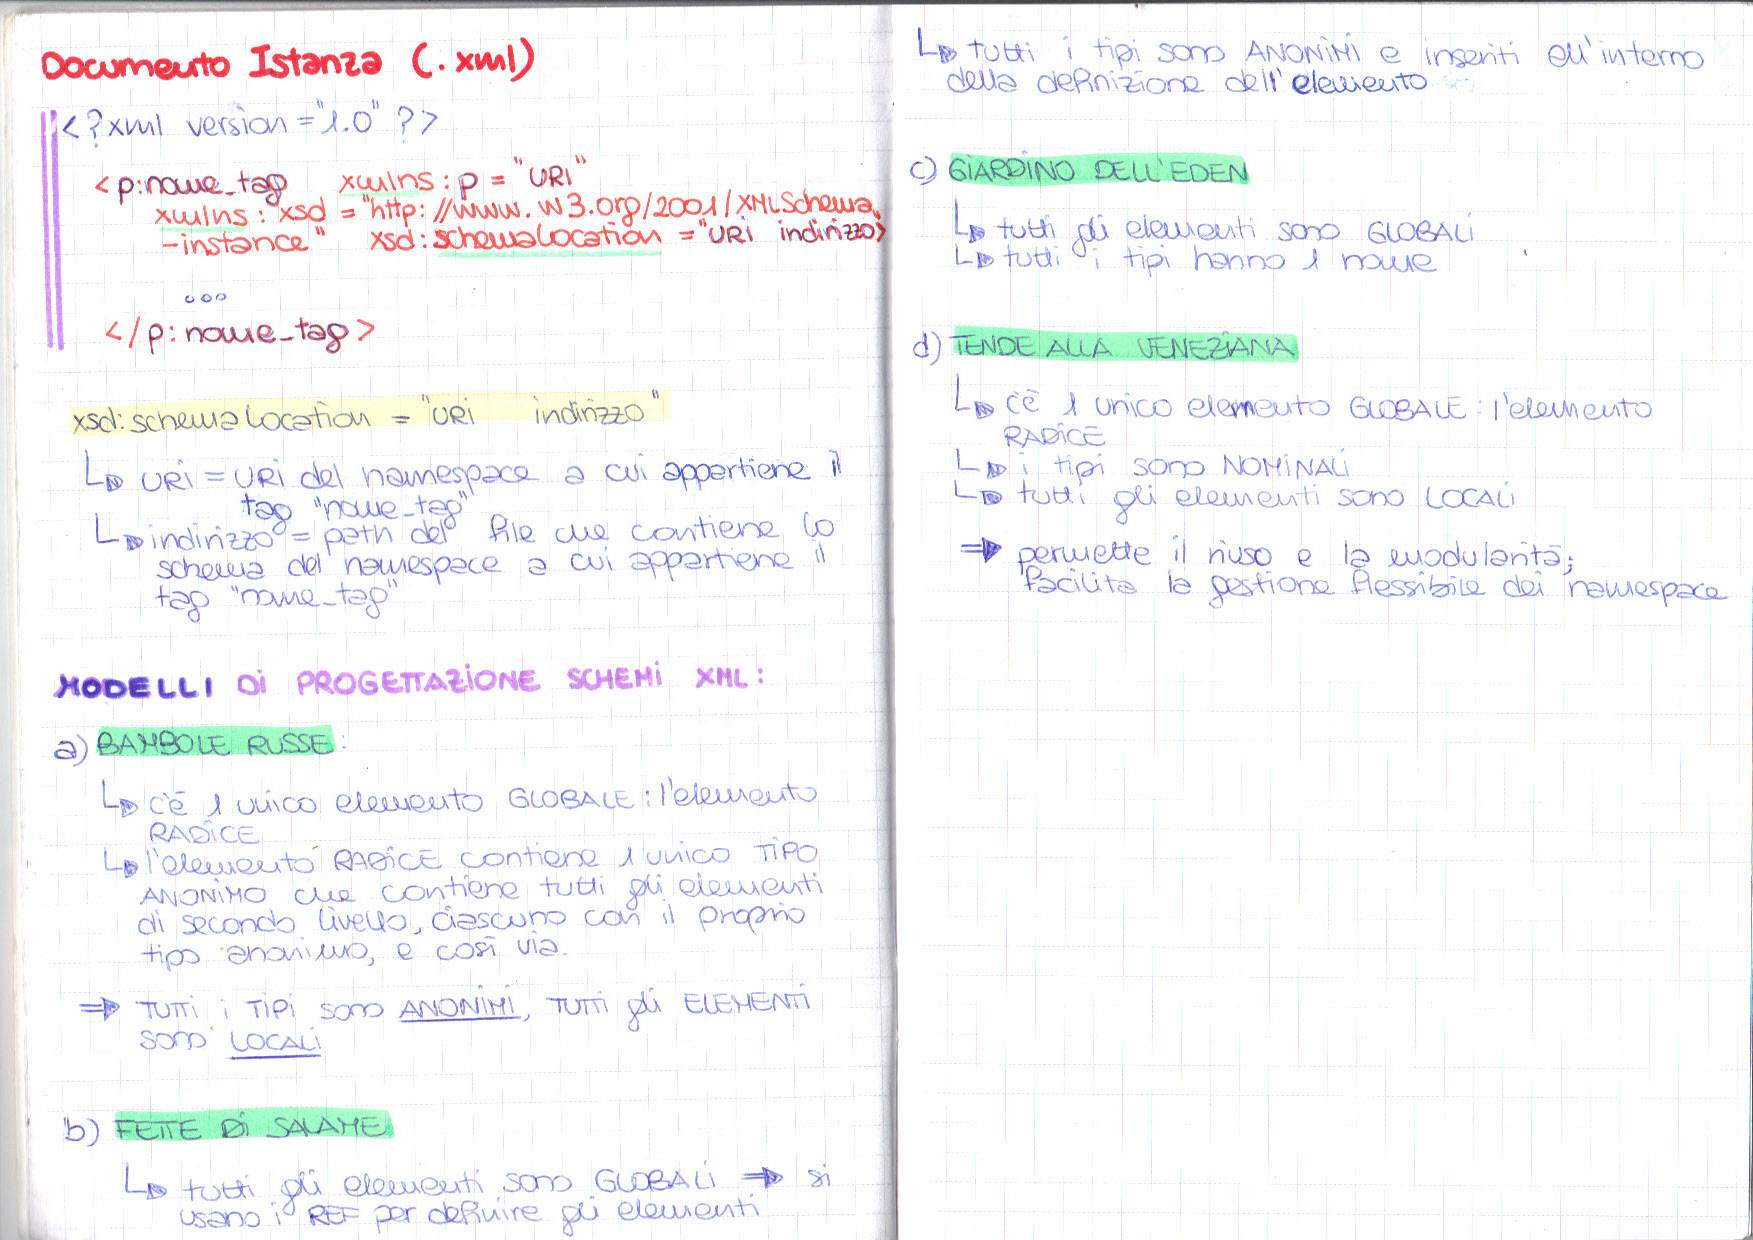 Documento Istanza (.xml)
<?xml version="1.0" ?>
<p:nome_tag xmlns:p = "URI"
xmlns:xsd = "http://www.w3.org/2001/XMLSchema
-instance" xsd:schemaLocation = "URI indirizzo>
...
</p:nome_tag>
xsd:schemaLocation = "URI indirizzo"
↳ URI = URI del namespace a cui appartiene il
tag "nome_tag"
↳ indirizzo = path del file che contiene lo
schema del namespace a cui appartiene il
tag "nome_tag"
MODELLI DI PROGETTAZIONE SCHEMI XML:
a) BAMBOLE RUSSE:
↳ c'è 1 unico elemento GLOBALE: l'elemento
RADICE
↳ l'elemento RADICE contiene 1 unico TIPO
ANONIMO che contiene tutti gli elementi
di secondo livello, ciascuno con il proprio
tipo anonimo, e così via.
⇒ TUTTI i TIPI sono ANONIMI, TUTTI gli ELEMENTI
sono LOCALI
b) FETTE DI SALAME
↳ tutti gli elementi sono GLOBALI ⇒ si
usano i REF per definire gli elementi
↳ tutti i tipi sono ANONIMI e inseriti all'interno
della definizione dell'elemento
c) GIARDINO DELL'EDEN
↳ tutti gli elementi sono GLOBALI
↳ tutti i tipi hanno 1 nome
d) TENDE ALLA VENEZIANA
↳ c'è 1 unico elemento GLOBALE: l'elemento
RADICE
↳ i tipi sono NOMINALI
↳ tutti gli elementi sono LOCALI
⇒ permette il riuso e la modularità;
facilita la gestione flessibile dei namespace